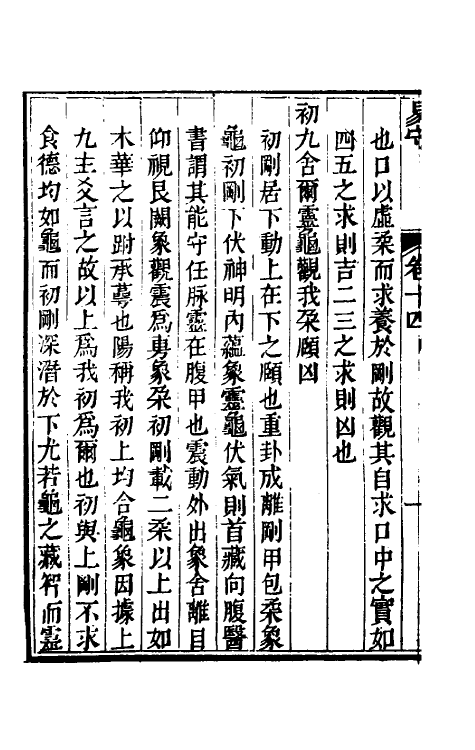 易守 卷十四 一
也口以虛柔而求養於剛故觀其自求口中之實如
四五之求則吉二三之求則凶也
初九舍爾靈龜觀我朶頤凶
初剛居下動上在下之頤也重卦成離剛甲包柔象
龜初剛下伏神明內蘊象靈龜伏氣則首藏向腹醫
書謂其能守任脉靈在腹甲也震動外出象舍離目
仰視艮闕象觀震爲旉象朶初剛載二柔以上出如
木華之以跗承蕚也陽稱我初上均合龜象因據上
九主爻言之故以上爲我初爲爾也初與上剛不求
食德均如龜而初剛深潛於下尤若龜之藏穴而靈